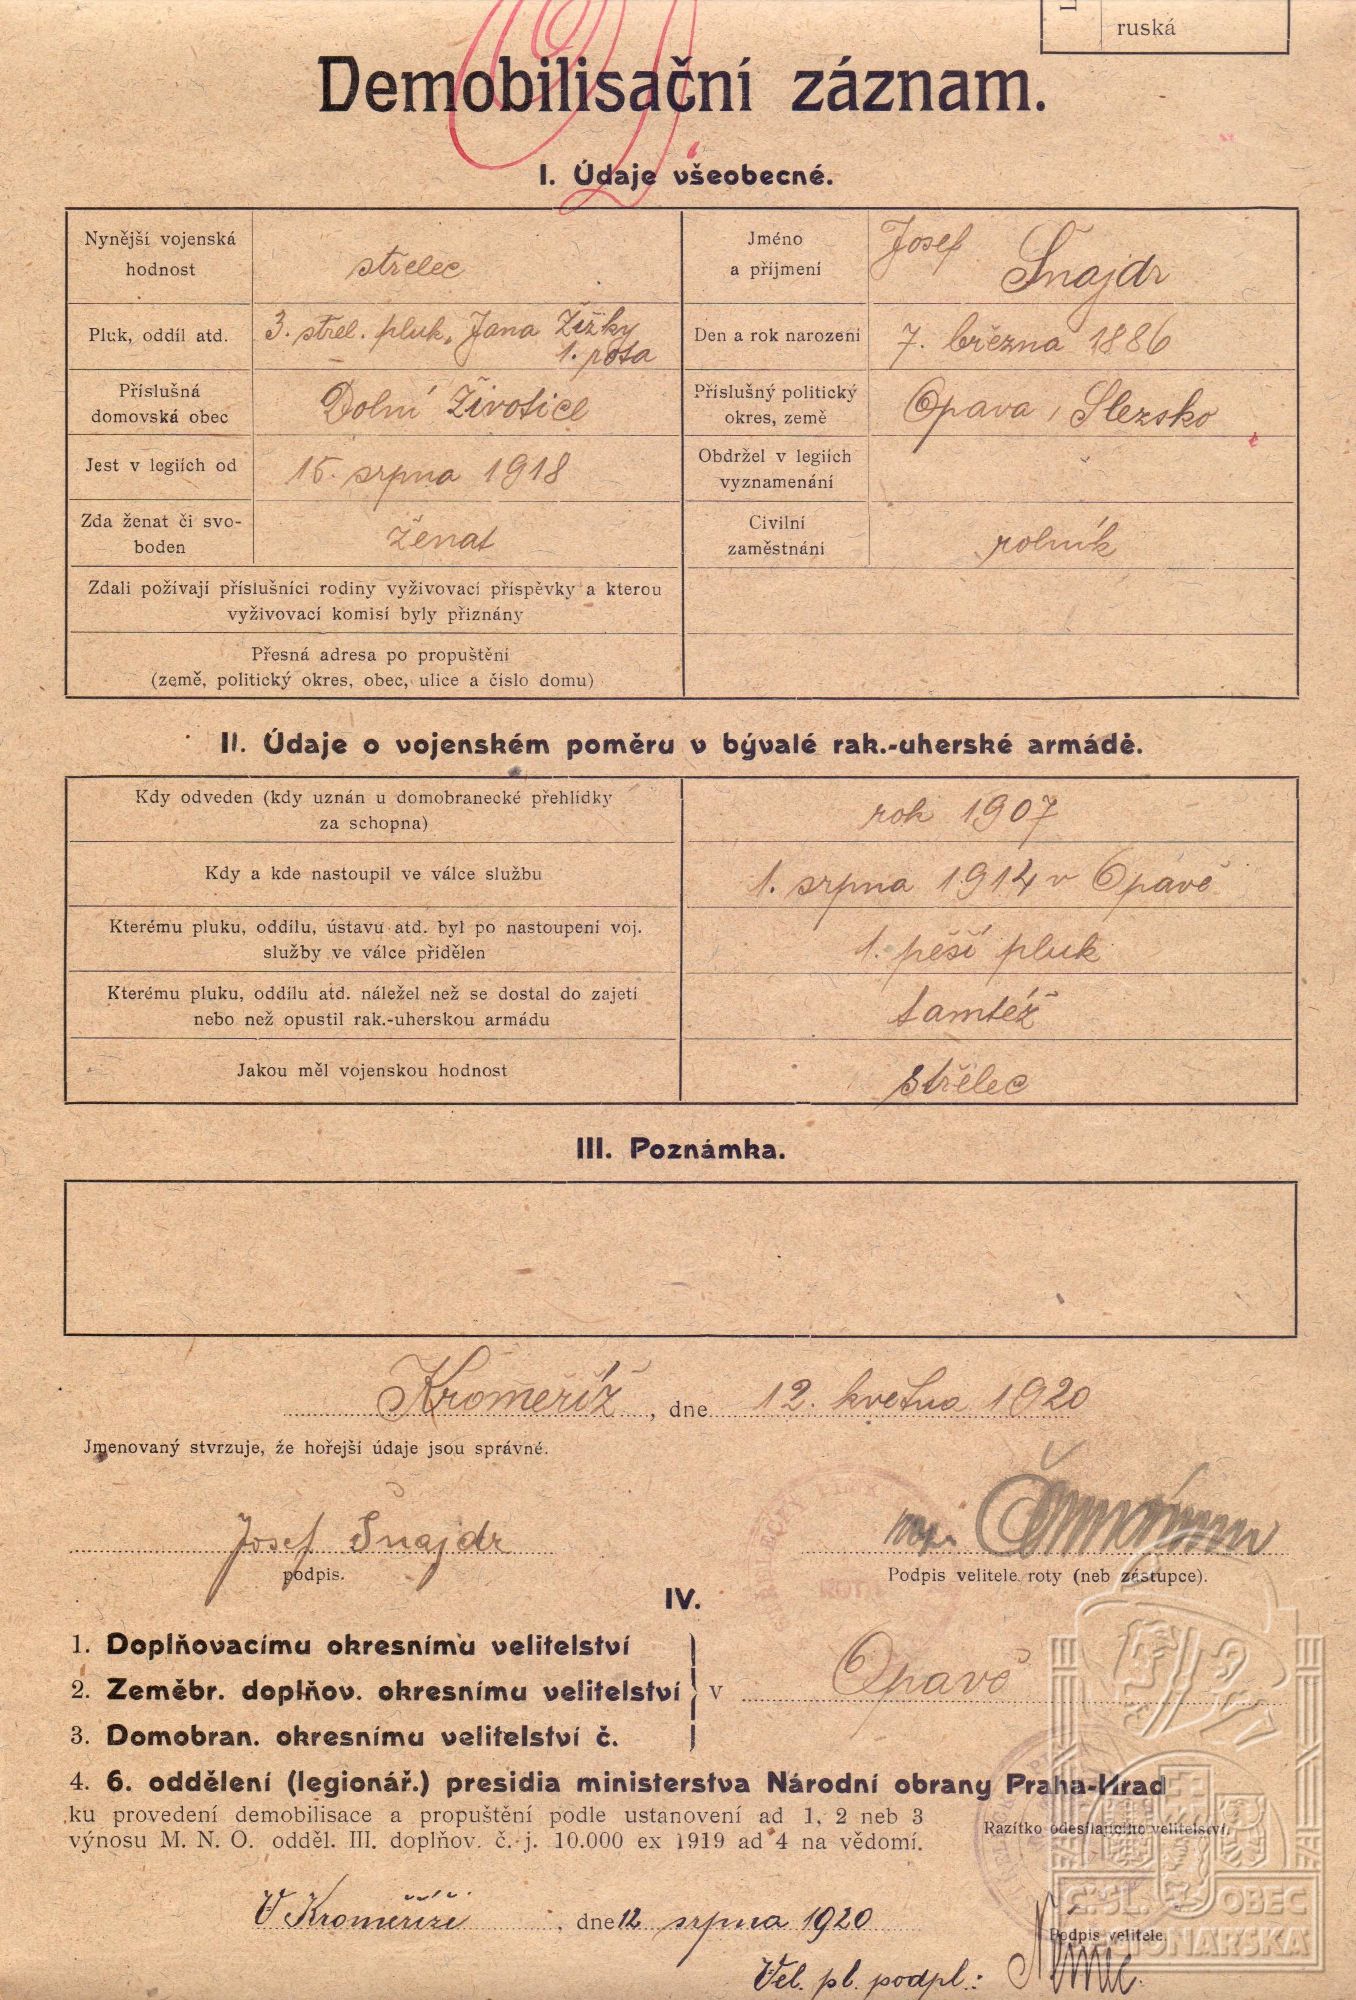 ruská
Demobilisační záznam.
I. Údaje všeobecné.
Nynější vojenská
hodnost
střelec
Jméno
a příjmení
Josef Šnajdr
Pluk, oddíl atd.
3. střel. pluk, Jana Žižky
1. rota
Den a rok narození
7. března 1886
Příslušná
domovská obec
Dolní Životice
Příslušný politický
okres, země
Opava, Slezsko
Jest v legiích od
15. srpna 1918
Obdržel v legiích
vyznamenání
Zda ženat či svo-
boden
ženat
Civilní
zaměstnání
rolník
Zdali požívají příslušníci rodiny vyživovací příspěvky a kterou
vyživovací komisí byly přiznány
Přesná adresa po propuštění
(země, politický okres, obec, ulice a číslo domu)
II. Údaje o vojenském poměru v bývalé rak.-uherské armádě.
Kdy odveden (kdy uznán u domobranecké přehlídky
za schopna)
rok 1907
Kdy a kde nastoupil ve válce službu
1. srpna 1914 v Opavě
Kterému pluku, oddílu, ústavu atd. byl po nastoupení voj.
služby ve válce přidělen
1. pěší pluk
Kterému pluku, oddílu atd. náležel než se dostal do zajetí
nebo než opustil rak.-uherskou armádu
tamtéž
Jakou měl vojenskou hodnost
střelec
III. Poznámka.
Kroměříž, dne 12. května 1920
Jmenovaný stvrzuje, že hořejší údaje jsou správné.
Josef Šnajdr
podpis.
Podpis velitele roty (neb zástupce).
ROTA
IV.
1. Doplňovacímu okresnímu velitelství
2. Zeměbr. doplňov. okresnímu velitelství
3. Domobran. okresnímu velitelství č.
v Opavě
4. 6. oddělení (legionář.) presidia ministerstva Národní obrany Praha-Hrad
ku provedení demobilisace a propuštění podle ustanovení ad 1, 2 neb 3
výnosu M. N. O. odděl. III. doplňov. č. j. 10.000 ex 1919 ad 4 na vědomí.
Razítko odesílajícího velitelství.
V Kroměříži, dne 12 srpna 1920
Podpis velitele.
Vel. pl. podpl.: Němec.
Č.SL. OBEC
LEGIONÁŘSKÁ